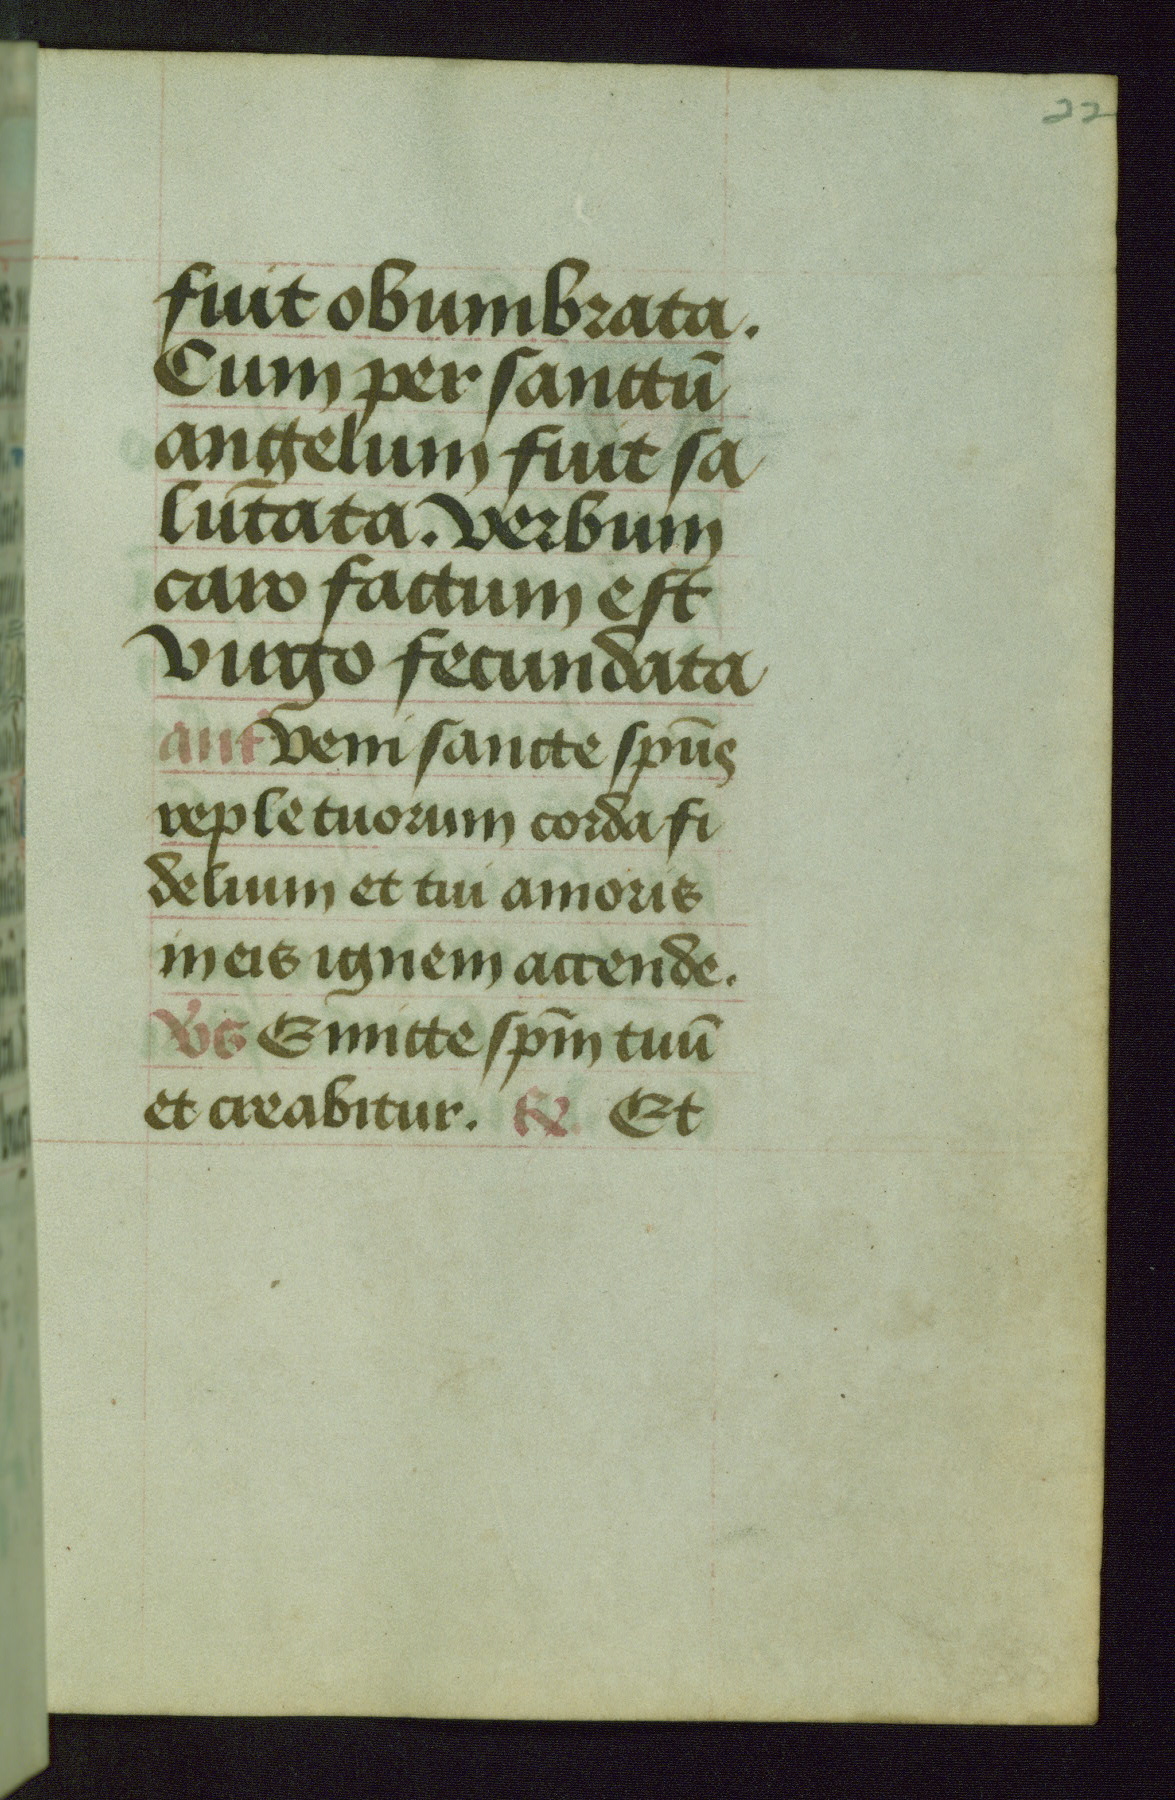 22
fuit obumbrata.
Cum per sanctū
angelum fuit sa
lutata. Verbum
caro factum est
Virgo fecundata
ant Veni sancte sp̄us
reple tuorum corda fi
delium et tui amoris
in eis ignem accende.
V̕s Emitte sp̄m tuū
et creabitur. ℟. Et